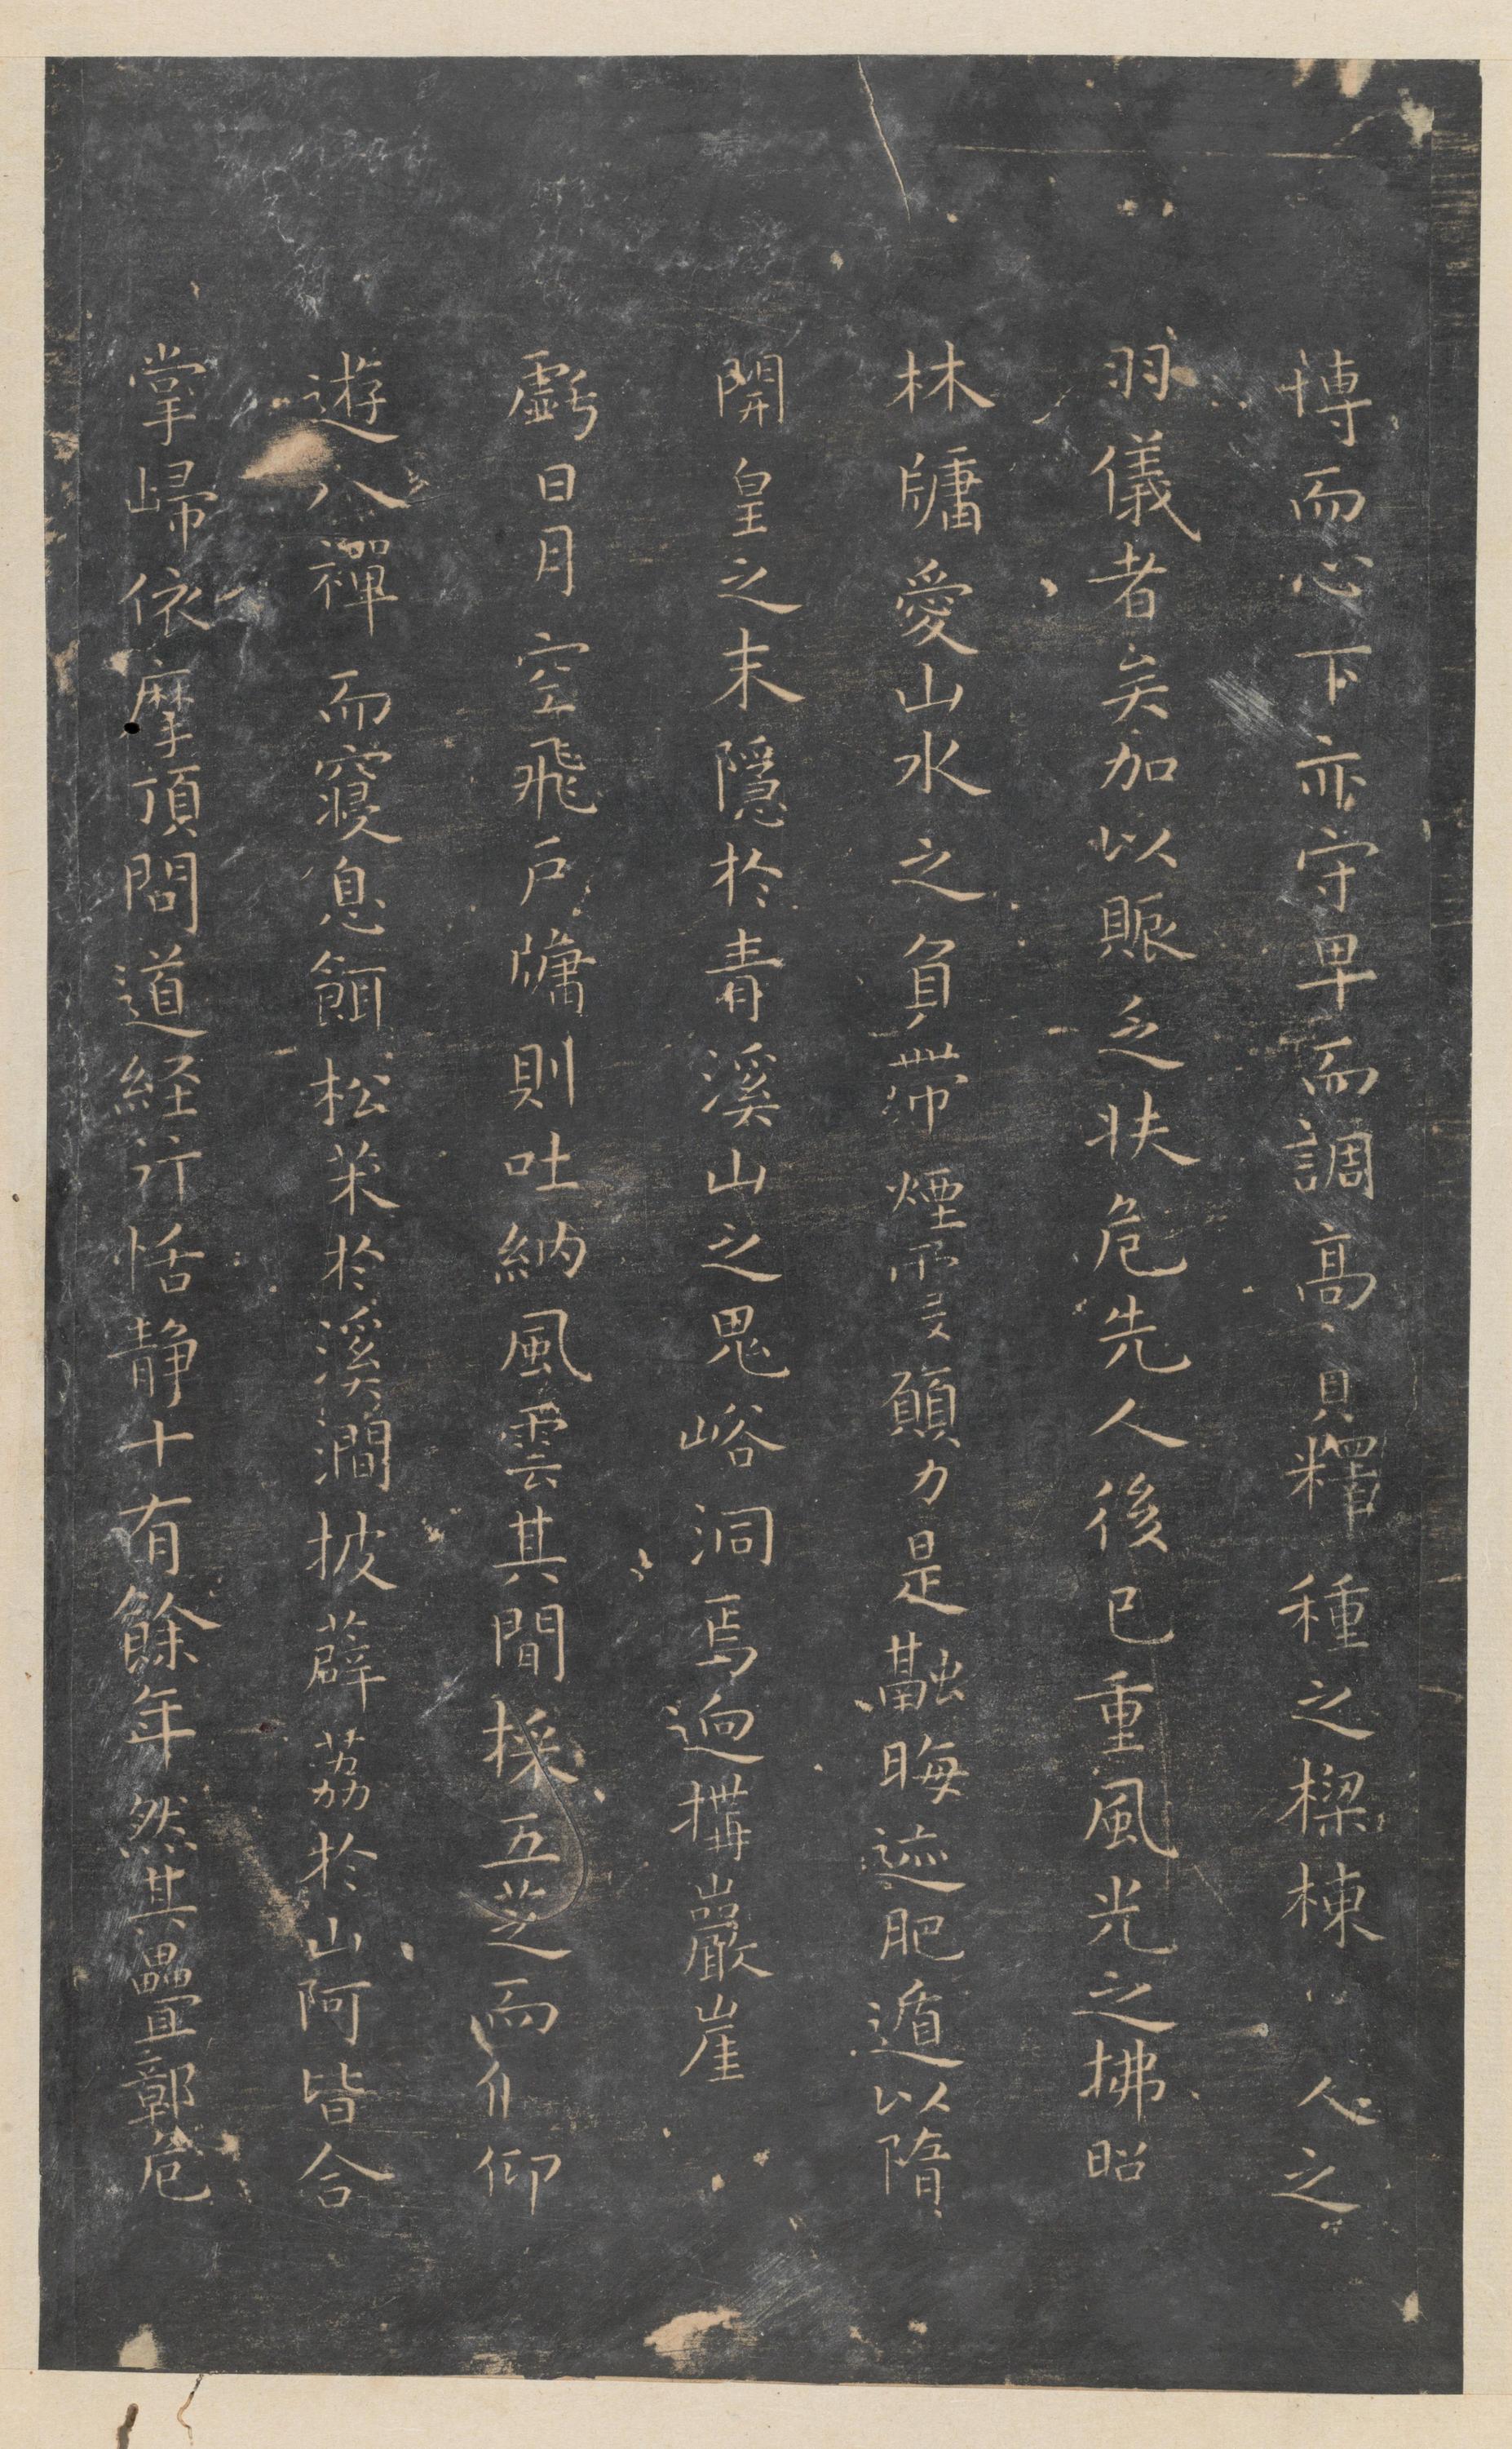 博而心下亦守卑而調高實釋種之樑棟人之
羽儀者矣加以賑乏扶危先人後已重風光之拂照
林牖愛山水之負帶煙霞願力是融晦迹肥遁以隋
開皇之末隱於青溪山之鬼峪洞焉迥構巖崖
虧日月空飛戶牖則吐納風雲其間採五芝而仰
遊八禪而寢息餌松菜於溪澗披薜荔於山阿皆合
掌歸依摩頂問道經行恬靜十有餘年然其疊鄣危